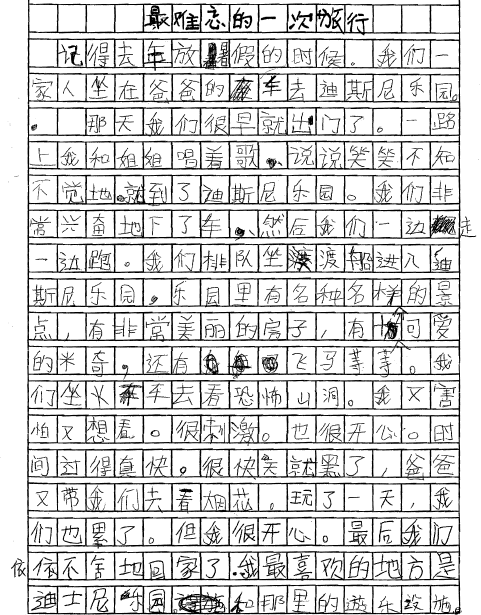 最难忘的一次旅行
记得去年放暑假的时候。我们一
家人坐在爸爸的车去迪斯尼乐园。
那天我们很早就出门了。一路
上我和姐姐唱着歌、说说笑笑不知
不觉地就到了迪斯尼乐园。我们非
常兴奋地下了车,然后我们一边走
一边跑。我们排队坐渡船进入迪
斯尼乐园。乐园里有各种各样的景
点,有非常美丽的房子,有可爱
的米奇,还有飞马等等。我
们坐火车去看恐怖山洞。我又害
怕又想看。很刺激。也很开心。时
间过得真快。很快天就黑了,爸爸
又带我们去看烟花。玩了一天,我
们也累了。但我很开心。最后我们
依依不舍地回家了。我最喜欢的地方是
迪士尼乐园和那里的游乐设施。